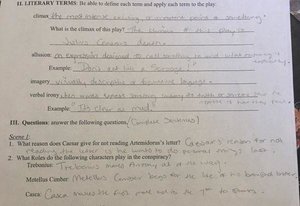 II. LITERARY TERMS: Be able to define each term and apply each term to the play.
climax the most intense exciting, a moment point of something.
What is the climax of this play? The climax of this play is
Julius Caesar's death.
allusion: an expression designed to call something to mind without
Example: "Don't act like a Scrooge!"
imagery visually descriptive or figurative language.
verbal irony
Example: "It's clear as mud."
III. Questions: answer the following questions. (Complete Sentences)
Scene I:
1. What reason does Caesar give for not reading Artemidorus's letter? Caesar's reason for not
reading the letter is he wants to do personal things last.
2. What Roles do the following characters play in the conspiracy?
Trebonius: Trebonius makes Antony out of the way.
Metellus Cimber: Metellus Cimber begs for the life of his banished brother.
Casca: Casca makes the first move and is the 1st to stab.